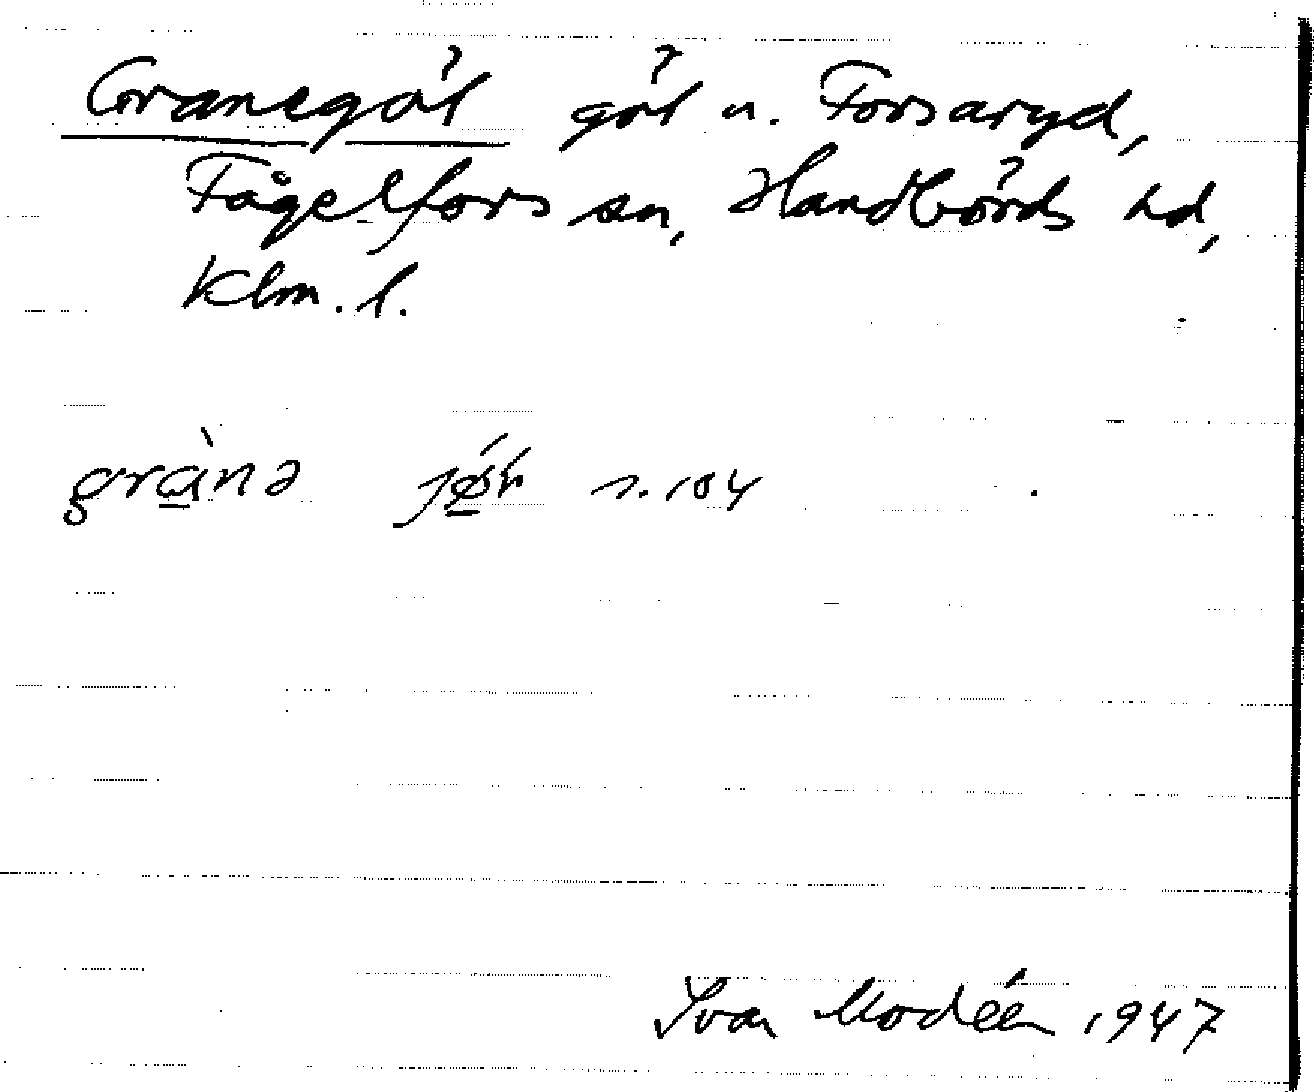 Granegöl göl u. Forsaryd,
Fågelfors sn, Handbörds hd,
Klm. l.
grànə jø̀l s. 104
Ivar Modéer 1947